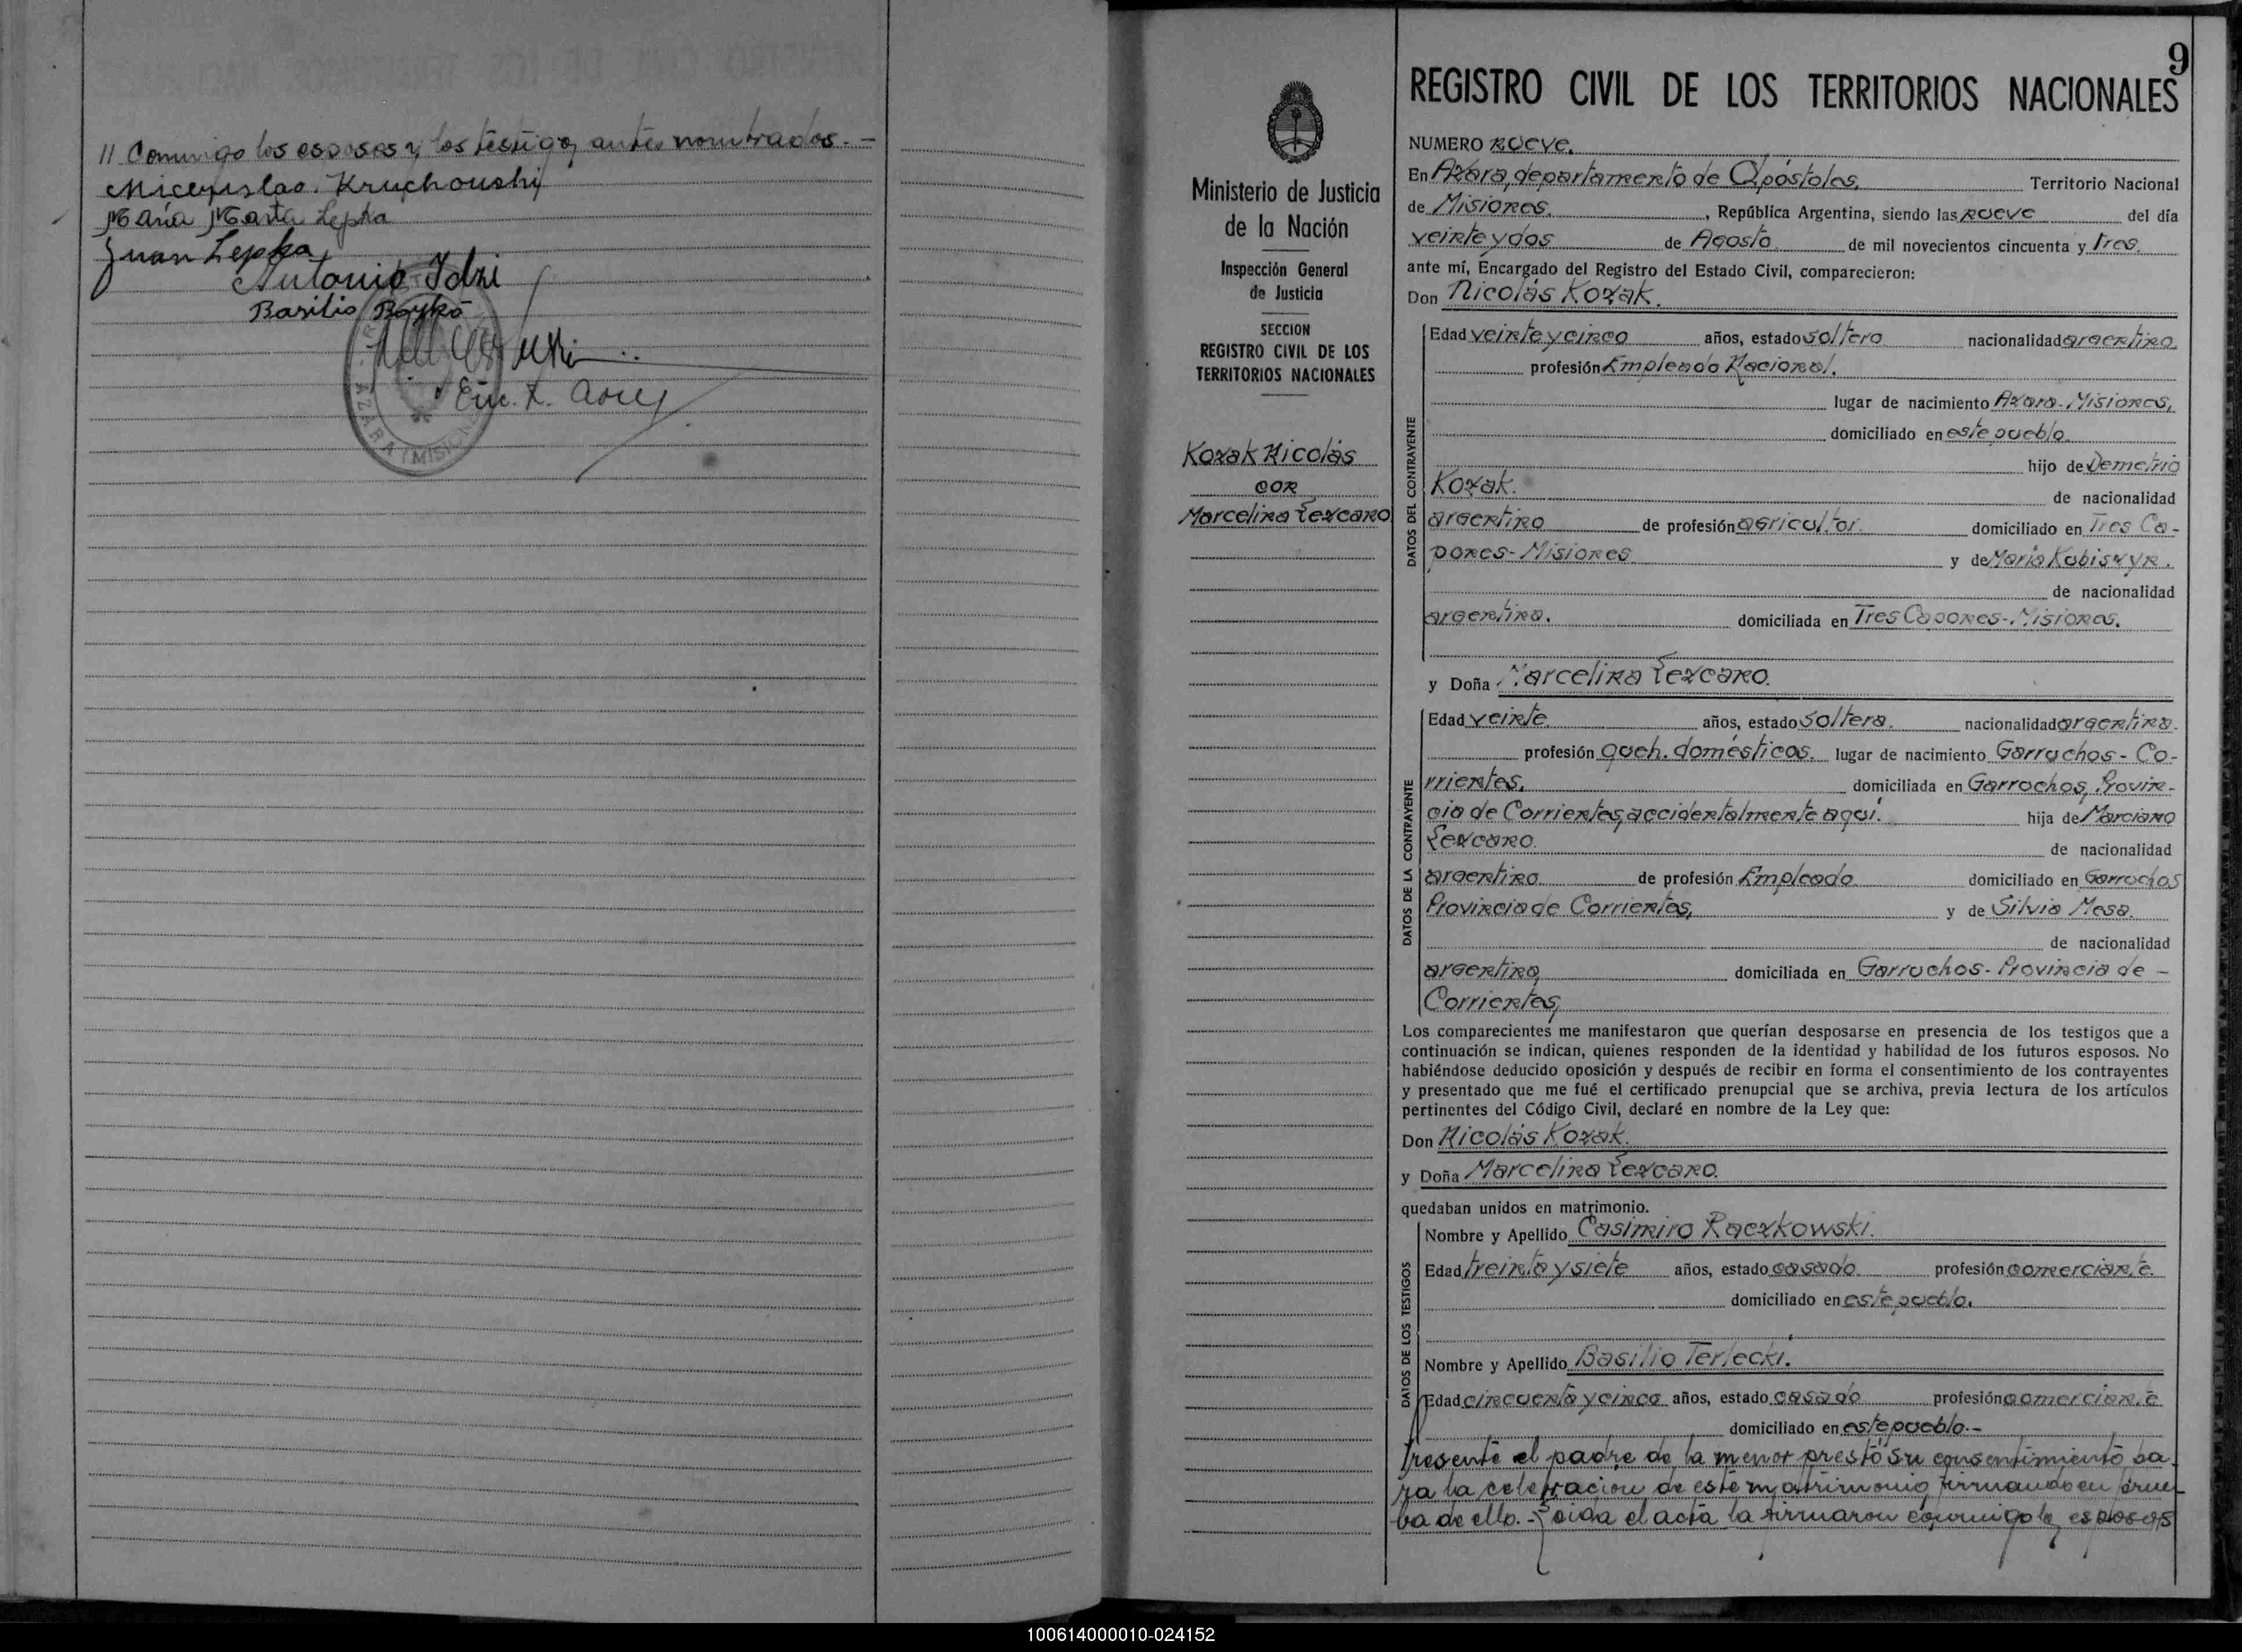 // Conmigo los esposos y los testigos antes nombrados.-
Miceyslao. Kruchouski
María Marta Lepka
Juan Lepka
Antonio Idzi
Basilio Boyko
Enc. R. Civil
AZARA (MISIONES)
9
REGISTRO CIVIL DE LOS TERRITORIOS NACIONALES
Ministerio de Justicia
de la Nación
Inspección General
de Justicia
SECCION
REGISTRO CIVIL DE LOS
TERRITORIOS NACIONALES
Kozak Nicolás
con
Marcelina Lezcano
NUMERO nueve.
En Azara, departamento de Apóstoles, Territorio Nacional
de Misiones, República Argentina, siendo las nueve del día
veinte y dos de Agosto de mil novecientos cincuenta y tres
ante mí, Encargado del Registro del Estado Civil, comparecieron:
Don Nicolás Kozak.
DATOS DEL CONTRAYENTE
Edad veinte y cinco años, estado soltero nacionalidad argentino
profesión Empleado Nacional.
lugar de nacimiento Azara-Misiones,
domiciliado en este pueblo
hijo de Demetrio
Kozak. de nacionalidad
argentino de profesión agricultor. domiciliado en Tres Ca-
pones-Misiones y de María Kubiszyn.
de nacionalidad
argentina. domiciliada en Tres Capones-Misiones.
y Doña Marcelina Lezcano.
DATOS DE LA CONTRAYENTE
Edad veinte años, estado soltera. nacionalidad argentina.
profesión queh. domésticos. lugar de nacimiento Garruchos-Co-
rrientes, domiciliada en Garrochos, Provin-
cia de Corrientes, accidentalmente aquí. hija de Marciano
Lezcano de nacionalidad
argentino de profesión Empleado domiciliado en Garrochos
Provincia de Corrientes, y de Silvia Mesa.
de nacionalidad
argentina, domiciliada en Garruchos-Provincia de -
Corrientes,
Los comparecientes me manifestaron que querían desposarse en presencia de los testigos que a
continuación se indican, quienes responden de la identidad y habilidad de los futuros esposos. No
habiéndose deducido oposición y después de recibir en forma el consentimiento de los contrayentes
y presentado que me fué el certificado prenupcial que se archiva, previa lectura de los artículos
pertinentes del Código Civil, declaré en nombre de la Ley que:
Don Nicolás Kozak.
y Doña Marcelina Lezcano.
quedaban unidos en matrimonio.
DATOS DE LOS TESTIGOS
Nombre y Apellido Casimiro Raczkowski.
Edad treinta y siete años, estado casado profesión comerciante.
domiciliado en este pueblo.
Nombre y Apellido Basilio Terlecki.
Edad cincuenta y cinco años, estado casado profesión comerciante
domiciliado en este pueblo.-
Presente el padre de la menor prestó su consentimiento pa-
ra la celebración de este matrimonio firmando en prue-
ba de ello.- Leída el acta la firmaron conmigo los esposos
100614000010-024152